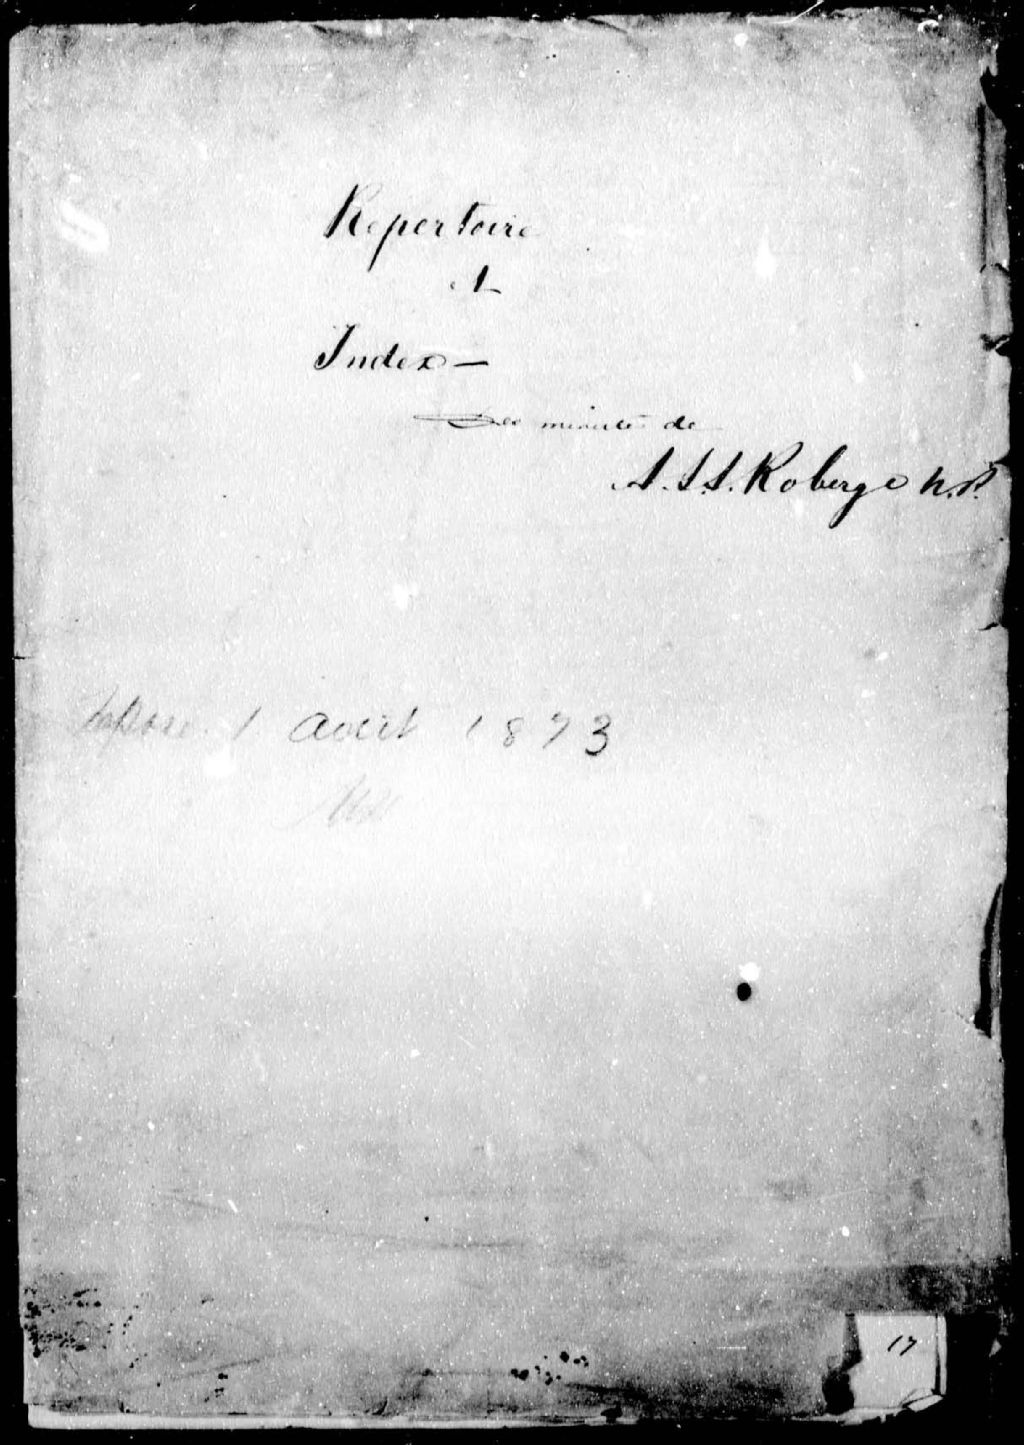 Répertoire
et
Index —
Des minutes de
A. S. S. Roberge N.P.
Déposé 1 août 1873
17